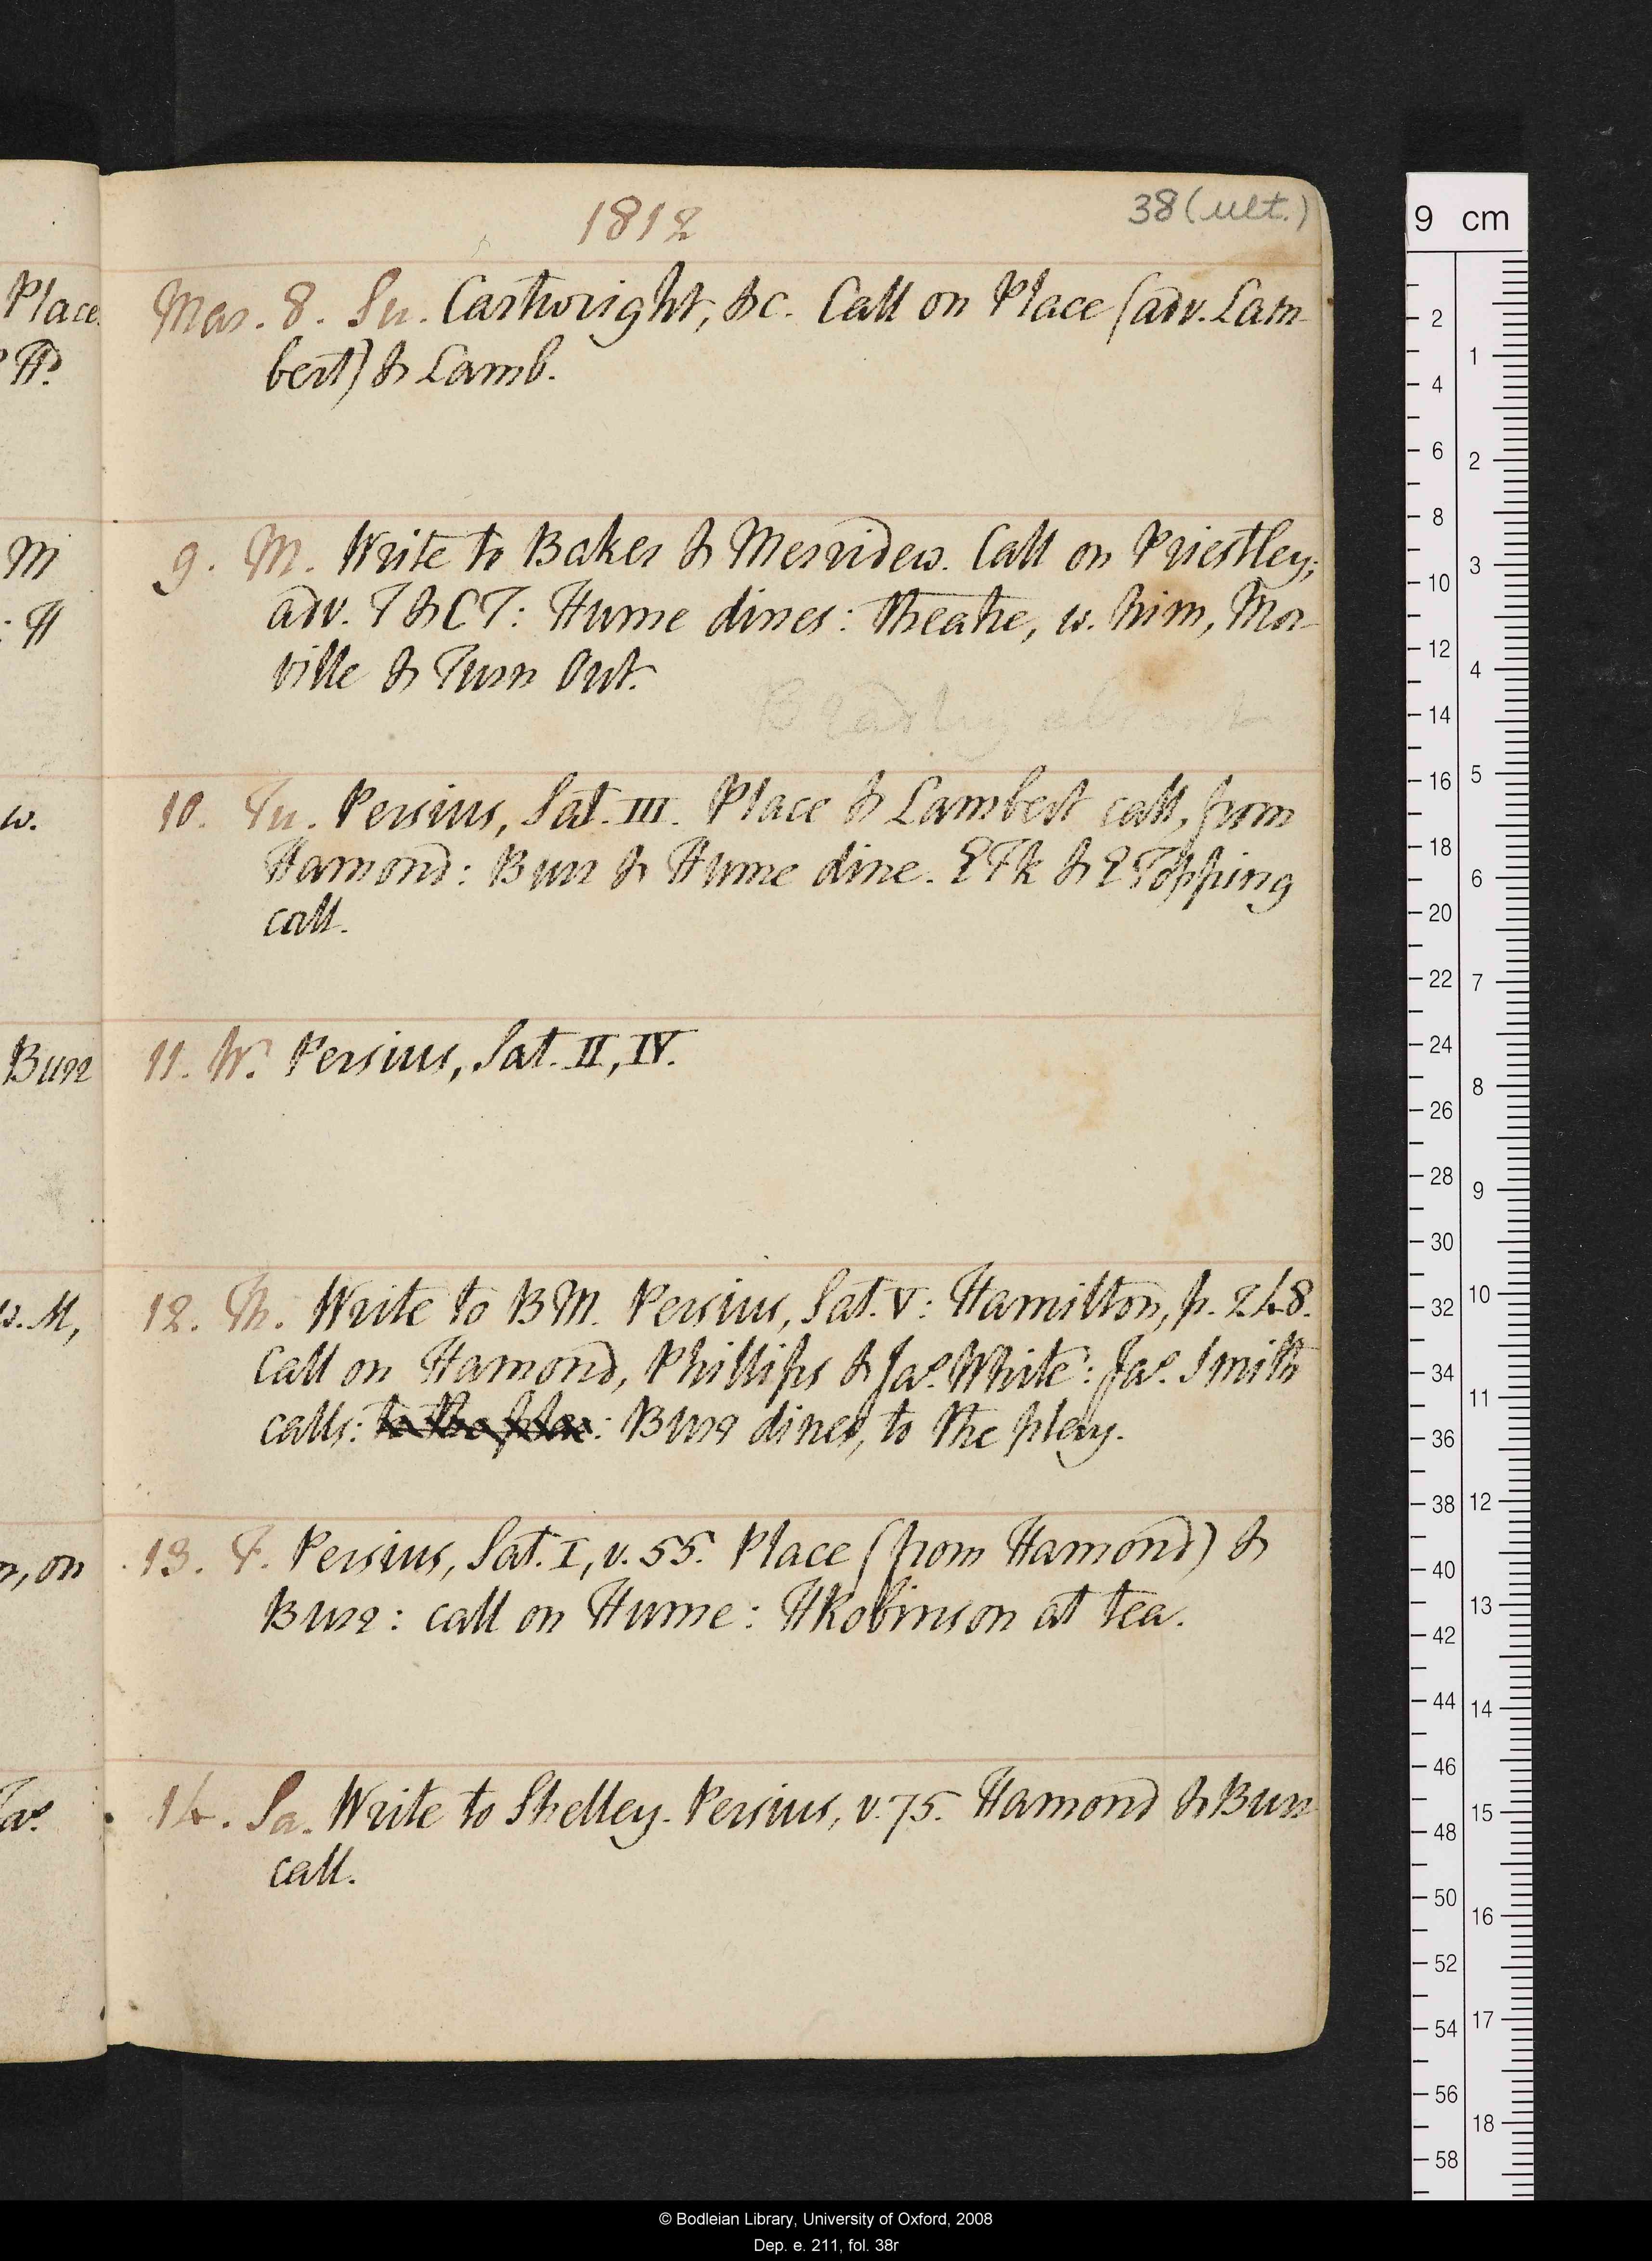 1812
38 (ult.)
Place
Mar. 8. Su. Cartwright, &c. Call on Place (adv. Lam-
bert) & Lamb.
M
9. M. Write to Baker & Merridew. Call on Priestley;
adv. T & CT: Hume dines: theatre, w. him, Mor-
ville & Turn Out.
w.
10. Tu. Persius, Sat. III. Place & Lambert call, from
Hamond: Burr & Hume dine. E Fk & E Topping
call.
Burr
11. W. Persius, Sat. II, IV.
w. M,
12. Th. Write to B M. Persius, Sat. V: Hamilton, p. 248.
Call on Hamond, Phillips & Jas. White: Jas. Smith
calls: to the play: Burr dines, to the play.
n, on
13. F. Persius, Sat. I, v. 55. Place (from Hamond) &
Burr: call on Hume: H Robinson at tea.
14. Sa. Write to Shelley. Persius, v. 75. Hamond & Burr
call.
9 cm
2
4
6
8
10
12
14
16
18
20
22
24
26
28
30
32
34
36
38
40
42
44
46
48
50
52
54
56
58
1
2
3
4
5
6
7
8
9
10
11
12
13
14
15
16
17
18
© Bodleian Library, University of Oxford, 2008
Dep. e. 211, fol. 38r